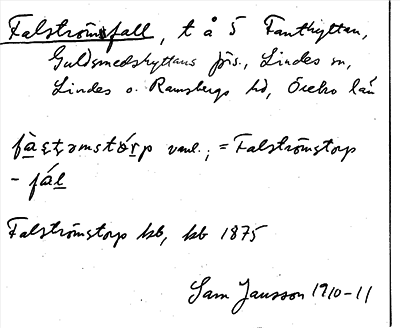 Falströmsfall, t å 5 Fanthyttan,
Guldsmedshyttans jbs., Lindes sn,
Lindes o. Ramsbergs hd, Örebro län
vanl.; = Falströmstorp
- fál
Falströmstorp hb, kb 1875
Sam Jansson 1910-11